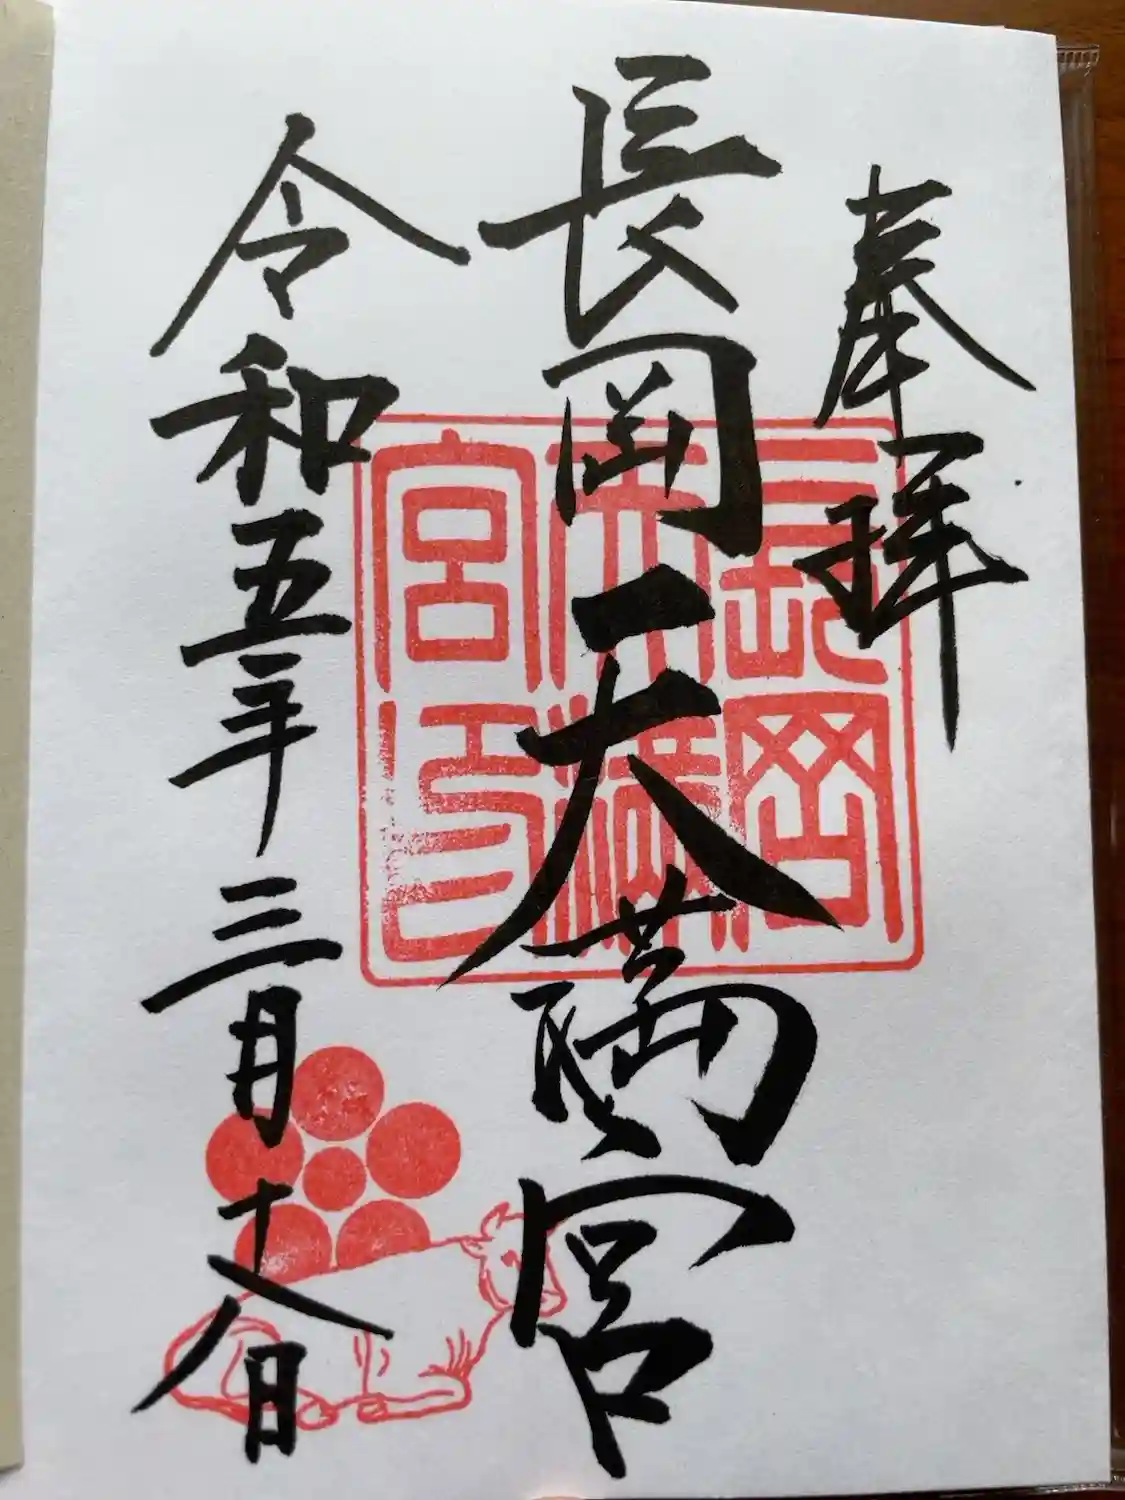 奉拝
長岡天満宮
令和五年三月十八日
長岡
天満
宮印